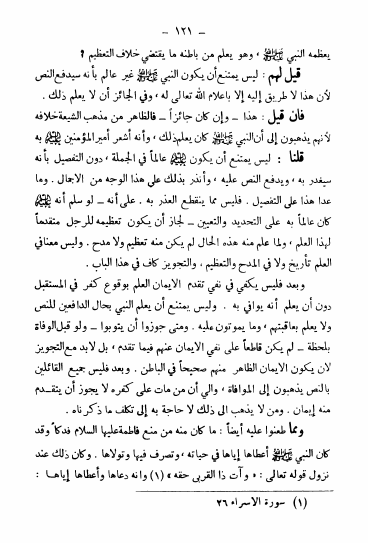 – ١٢١ –
يعظمه النبي ﷺ ، وهو يعلم من باطنه ما يقتضي خلاف التعظيم ؟
قيل لهم : ليس يمتنع أن يكون النبي ﷺ غير عالم بأنه سيدفع النص
لأن هذا لا طريق إليه إلا باعلام الله تعالى له ، وفي الجائز أن لا يعلم ذلك .
فان قيل : هذا – وإن كان جائزاً – فالظاهر من مذهب الشيعة خلافه
لأنهم يذهبون إلى أن النبي ﷺ كان يعلم ذلك ، وأنه أشعر أمير المؤمنين ﷺ به
قلنا : ليس يمتنع أن يكون ﷺ عالماً في الجملة ، دون التفصيل بأنه
سيغدر به ، ويدفع النص عليه ، وأنذر بذلك على هذا الوجه من الاجمال . وما
عدا هذا على التفصيل . فليس مما ينقطع العذر به . على أنه – لو سلم أنه ﷺ
كان عالماً به على التحديد والتعيين – لجاز أن يكون تعظيمه للرجل متقدماً
لهذا العلم ، ولما علم منه هذه الحال لم يكن منه تعظيم ولا مدح . وليس معنا في
العلم تأريخ ولا في المدح والتعظيم ، والتجويز كاف في هذا الباب .
وبعد فليس يكفي في نفي تقدم الايمان العلم بوقوع كفر في المستقبل
دون أن يعلم أنه يوافي به . وليس يمتنع أن يعلم النبي بحال الدافعين للنص
ولا يعلم بعاقبتهم ، وما يموتون عليه . ومتى جوزوا أن يتوبوا – ولو قبل الوفاة
بلحظة – لم يكن قاطعاً على نفي الايمان عنهم فيما تقدم ، بل لابد مع التجويز
لان يكون الايمان الظاهر منهم صحيحاً في الباطن . وبعد فليس جميع القائلين
بالنص يذهبون إلى الموافاة ، والي أن من مات على كفره لا يجوز أن يتقدم
منه إيمان . ومن لا يذهب الى ذلك لا حاجة به إلى تكلف ما ذكرناه .
ومما طعنوا عليه أيضاً : ما كان منه من منع فاطمة عليها السلام فدكاً وقد
كان النبي ﷺ أعطاها إياها في حياته ، وتصرف فيها وتولاها . وكان ذلك عند
نزول قوله تعالى : « وآت ذا القربى حقه » (١) وانه دعاها وأعطاها إياها :
(١) سورة الاسراء ٢٦